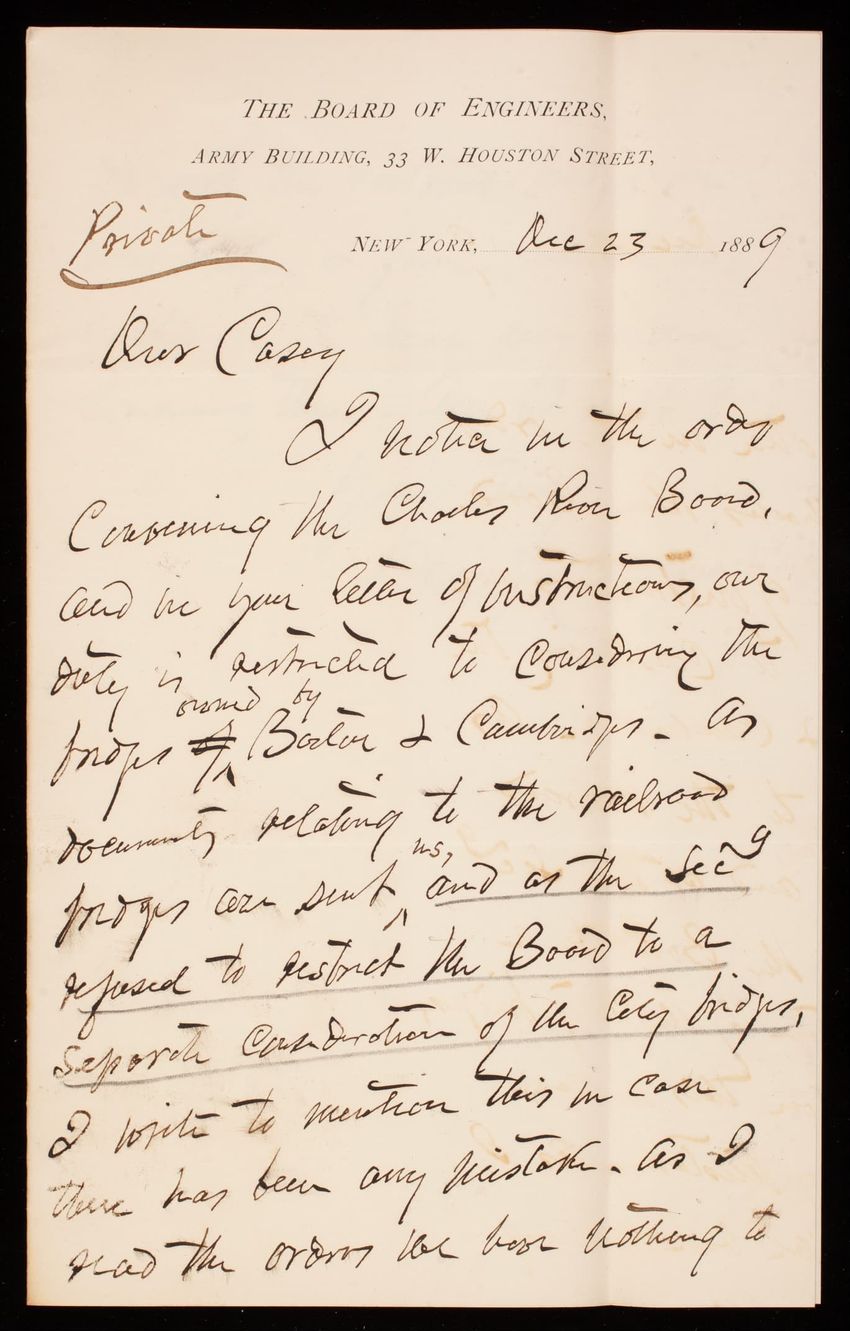 THE BOARD OF ENGINEERS,
ARMY BUILDING, 33 W. HOUSTON STREET,
Private
NEW YORK, Dec 23 1889
Dear Casey
I notice in the order
Convening the Charles River Board,
and in your letter of instructions, our
duty is restricted to considering the
bridges of owned by Boston & Cambridge. As
documents relating to the railroad
bridges are sent us, and as the Secy
refused to restrict the Board to a
separate consideration of the City bridges,
I write to mention this in case
there has been any mistake. As I
read the orders we have nothing to